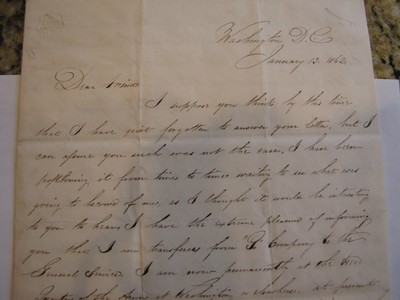 Washington D.C
January 13. 1862
Dear Friend
I suppose you think by this time
that I have quit forgotten to answer your letter, but I
can assure you such was not the case, I have been
postponing it from time to time waiting to see what was
going to become of me, as I thought it would be intersting
to you to hear, I have the extreme pleasure of informing
you that I am transfered from Company to the
General Service I am now permanently at the Head
Quarters of the Army at Washington at present